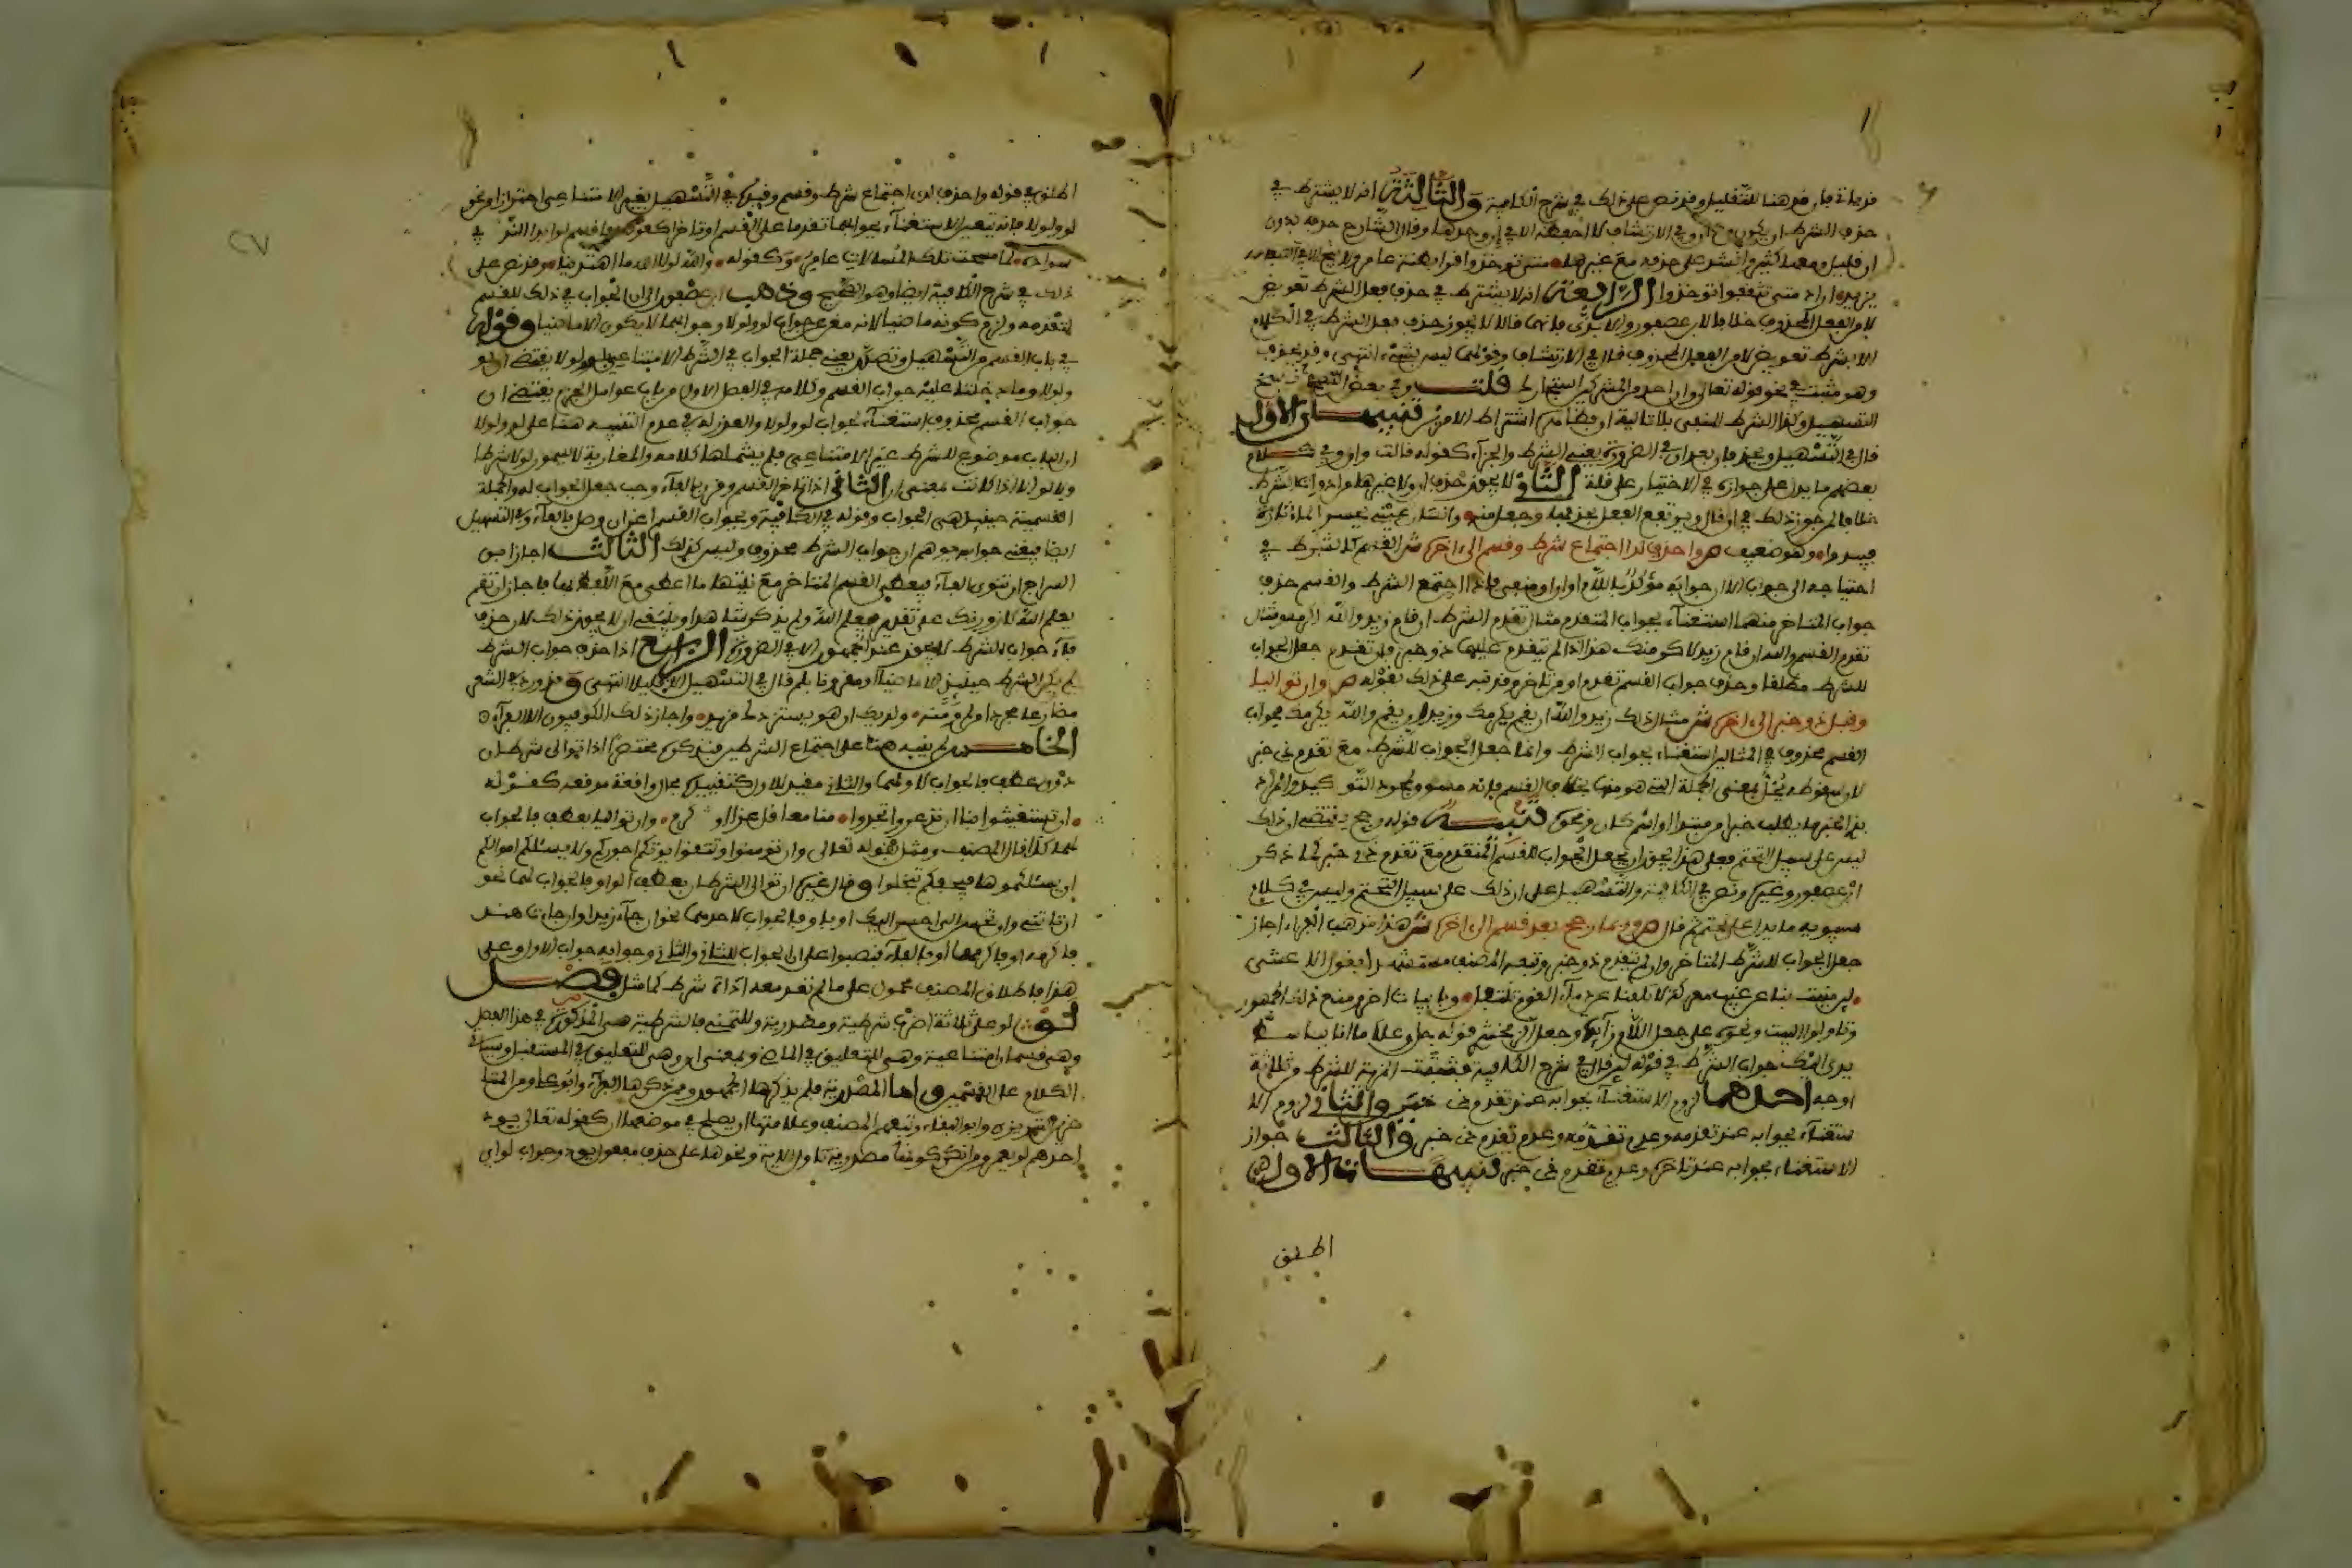 قد يأتي فإن قد هنا للتقليل وقد نص على ذلك في شرح الكافية والثالثة أنه لا يشترط في
حذف الشرط أن يكون مع إن وفي الارتشاف لا أحفظه إلا في إن وحدها وقال الشارح حذفه بدون
إن قليل ومعها كثير وأنشد على حذفه مع غيرها متى تؤخذوا قسرا بظنة عامر ولا ينج إلا في الصفاد
يزيد أراد متى تثقفوا تؤخذوا الرابعة أنه لا يشترط في حذف فعل الشرط تعويض
لا من الفعل المحذوف خلافا لابن عصفور والأبدي فإنهما قالا لا يجوز حذف فعل الشرط في الكلام
إلا بشرط تعويض لا من الفعل المحذوف قال في الارتشاف وقولهما ليس بشيء انتهى وقد يحذف
وهو مثبت في نحو قوله تعالى وإن أحد من المشركين استجارك قلت وفي بعض نسخ
التسهيل وكذا الشرط المنفي بلا تالية إن وظاهره اشتراط الأمرين تنبيهان الأول
قال في التسهيل ويحذفان بعد إن في الضرورة يعني الشرط والجزاء كقوله قالت وإن وفي كلام
بعضهم ما يدل على جوازه في الاختيار على قلة الثاني لا يجوز حذف إن ولا غيرها من أدوات الشرط
خلافا لمن جوز ذلك في إن قال ويرتفع الفعل بحذفها وجعل منه وإنسان عيني يحسر الماء تارة
فيبدو وهو ضعيف ص واحذف لدا اجتماع شرط وقسم إلى آخره ش القسم كالشرط في
احتياجه إلى جواب إلا أن جوابه مؤكد باللام أو إن أو منفي فإذا اجتمع الشرط والقسم حذف
جواب المتأخر منهما استغناء بجواب المتقدم مثال تقدم الشرط إن قام زيد والله أكرمه ومثال
تقدم القسم والله إن قام زيد لأكرمنك هذا إذا لم يتقدم عليهما ذو خبر فإن تقدم جعل الجواب
للشرط مطلقا وحذف جواب القسم تقدم أو تأخر وقد نبه على ذلك بقوله ص وإن تواليا
وقبل ذو خبر إلى آخره ش مثال ذلك زيد والله إن يقم يكرمك وزيد إن يقم والله يكرمك فجواب
القسم محذوف في المثالين استغناء بجواب الشرط وإنما جعل الجواب للشرط مع تقدم ذي خبر
لأن سقوطه يخل بمعنى الجملة التي هو منها بخلاف القسم فإنه مسوق لمجرد التوكيد والمراد
بذي الخبر ما يطلب خبرا من مبتدإ أو اسم كان ونحوه تنبيه قوله رجح يقتضي أن ذلك
ليس على سبيل التحتم فعلى هذا يجوز أن يجعل الجواب للقسم المتقدم مع تقدم ذي خبر كما ذكر
ابن عصفور وغيره ونص في الكافية والتسهيل على أن ذلك على سبيل التحتم وليس في كلام
سيبويه ما يدل على التحتم ثم قال ص وربما رجح بعد قسم إلى آخره ش هذا مذهب الفراء أجاز
جعل الجواب للشرط المتأخر وإن لم يتقدم ذو خبر وتبعه المصنف مستشهدا بقول الأعشى
لئن منيت بنا عن غب معركة لا تلفنا عن دماء القوم ننتفل وبأبيات أخر ومنع ذلك الجمهور
وتأولوا البيت ونحوه على جعل اللام زائدة وجعل الزمخشري قوله جل وعلا ما أنا بباسط
يدي إليك جواب الشرط في قوله لئن قال في شرح الكافية فتثبت المزية للشرط من ثلاثة
أوجه أحدهما لزوم الاستغناء بجوابه عند تقدم ذي خبر والثاني لزوم الا
ستغناء بجوابه عند تقدمه وعدم تقدم ذي خبر والثالث جواز
الاستغناء بجوابه عند تأخره وعدم تقدم ذي خبر تنبيهات الأول
اطلق
اطلق في قوله واحذف لدى اجتماع شرط وقسم وقيده في التسهيل بغير الامتناعي احترازا من نحو
لو ولولا فإنه يتعين الاستغناء بجوابهما تقدما على القسم أو تأخرا كقوله فأقسم لو أبدا الندي
سواده لما مسحت تلك المسالات عامر وكقوله والله لولا الله ما اهتدينا وقد نص على
ذلك في شرح الكافية أيضا وهو الصحيح وذهب ابن عصفور إلى أن الجواب في ذلك للقسم
لتقدمه ولزم كونه ماضيا لأنه مغن عن جواب لو ولولا وجوابهما لا يكون إلا ماضيا وقوله
في باب القسم من التسهيل وتصدر يعني جملة الجواب في الشرط الامتناعي بلو أو لولا يقتضي أن لو
ولولا وما دخلتا عليه جواب القسم وكلامه في الفصل الأول من باب عوامل الجزم يقتضي أن
جواب القسم محذوف استغناء بجواب لو ولولا والعذر له في عدم التنبيه هنا على لو ولولا
أن الباب موضوع للشرط غير الامتناعي فلم يشملها كلامه والمغاربة لا يسمون لولا شرطا
ولا لو إلا إذا كانت بمعنى إن الثاني إذا تأخر القسم وقرن بالفاء وجب جعل الجواب له والجملة
القسمية حينئذ هي الجواب وقوله في الكافية وبجواب القسم اغن إن وصل بالفاء وفي التسهيل
أيضا فيغني جوابه يوهم أن جواب الشرط محذوف وليس كذلك الثالث أجاز ابن
السراج أن تنوى الفاء فيعطى القسم المتأخر مع نيتها ما أعطي مع اللفظ بها فأجاز إن تقم
يعلم الله لأزورنك على تقدير فيعلم الله ولم يذكر شاهدا وينبغي أن لا يجوز ذلك لأن حذف
فاء جواب الشرط لا يجوز عند الجمهور إلا في الضرورة الرابع إذا حذف جواب الشرط
لم يكن الشرط حينئذ إلا ماضيا أو مقرونا بلم قال في التسهيل إلا قليلا انتهى وقد ورد في الشعر
مضارعا مجردا من لم منه ولديك إن هو يستزدك مزيد وأجاز ذلك الكوفيون إلا الفراء
الخامس لم ينبه هنا على اجتماع الشرطين فنذكره مختصرا إذا توالى شرطان
دون عطف فالجواب لأولهما والثاني مقيد للأول كتقييده بحال واقعة موقعه كقوله
إن تستغيثوا بنا إن تذعروا تجدوا منا معاقل عز زانها كرم وإن تواليا بعطف فالجواب
لهما كذا قال المصنف ومثله بقوله تعالى وإن تؤمنوا وتتقوا يؤتكم أجوركم ولا يسئلكم أموالكم
إن يسئلكموها فيحفكم تبخلوا وقال غيره إن توالى الشرطان بعطف الواو فالجواب لهما نحو
إن تأتني وإن تحسن إلي أحسن إليك أو بأو فالجواب لأحدهما نحو إن جاء زيد أو إن جاءت هند
فأكرمه أو فأكرمها أو بالفاء فنصوا على أن الجواب للثاني والثاني وجوابه جواب الأول وعلى
هذا فإطلاق المصنف محمول على ما لم تقدر معه أداة شرط كما مثل فصل
لو لو على ثلاثة أضرب شرطية ومصدرية وللتمني فالشرطية هي المذكورة في هذا الفصل
وهي قسمان امتناعية وهي للتعليق في الماضي وبمعنى إن وهي للتعليق في المستقبل وسيأتي
الكلام على القسمين وأما المصدرية فلم يذكرها الجمهور وممن ذكرها الفراء وأبو علي ومن المتا
خرين التبريزي وأبو البقاء وتبعهم المصنف وعلامتها أن يصلح في موضعها أن كقوله تعالى يود
أحدهم لو يعمر ومن أنكر كونها مصدرية تأول الآية ونحوها على حذف مفعول يود وجواب لو أي